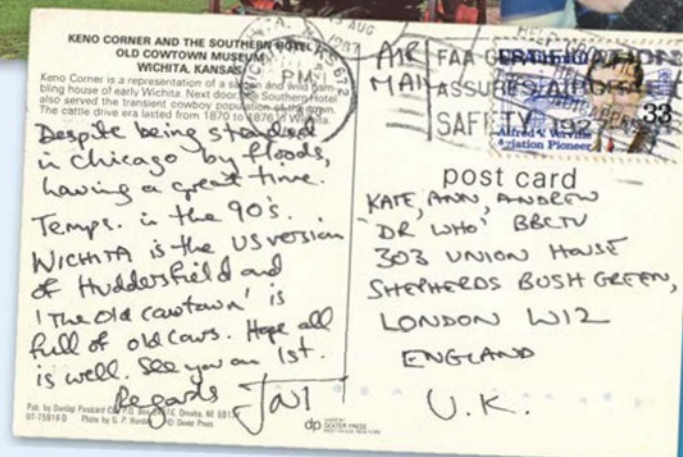 KENO CORNER AND THE SOUTHERN HOTEL
OLD COWTOWN MUSEUM
WICHITA, KANSAS
Keno Corner is a representation of a and wild gam-
bling house of early Wichita. Next door the Southern Hotel
also served the transient cowboy population of the town.
The cattle drive era lasted from 1870 to 1876 in Wichita.
Despite being stranded
in Chicago by floods,
having a great time.
Temps. in the 90's.
WICHITA is the US version
of Huddersfield and
'The old cowtown' is
full of old cows. Hope all
is well. See you on 1st.
Regards JNT
Pub. by Dunlap Postcard Co., P.O. Box Omaha, NE
Photo by G. P. © Dexter Press
dp DEXTER PRESS
AUG
1987
PM
AIR
MAIL
FAA
ASSURES
SAFETY
Alfred V. Verville
Aviation Pioneer
33
post card
KATE, ANN, ANDREW
'DR WHO' BBCTV
303 UNION HOUSE
SHEPHERDS BUSH GREEN,
LONDON W12
ENGLAND
U.K.